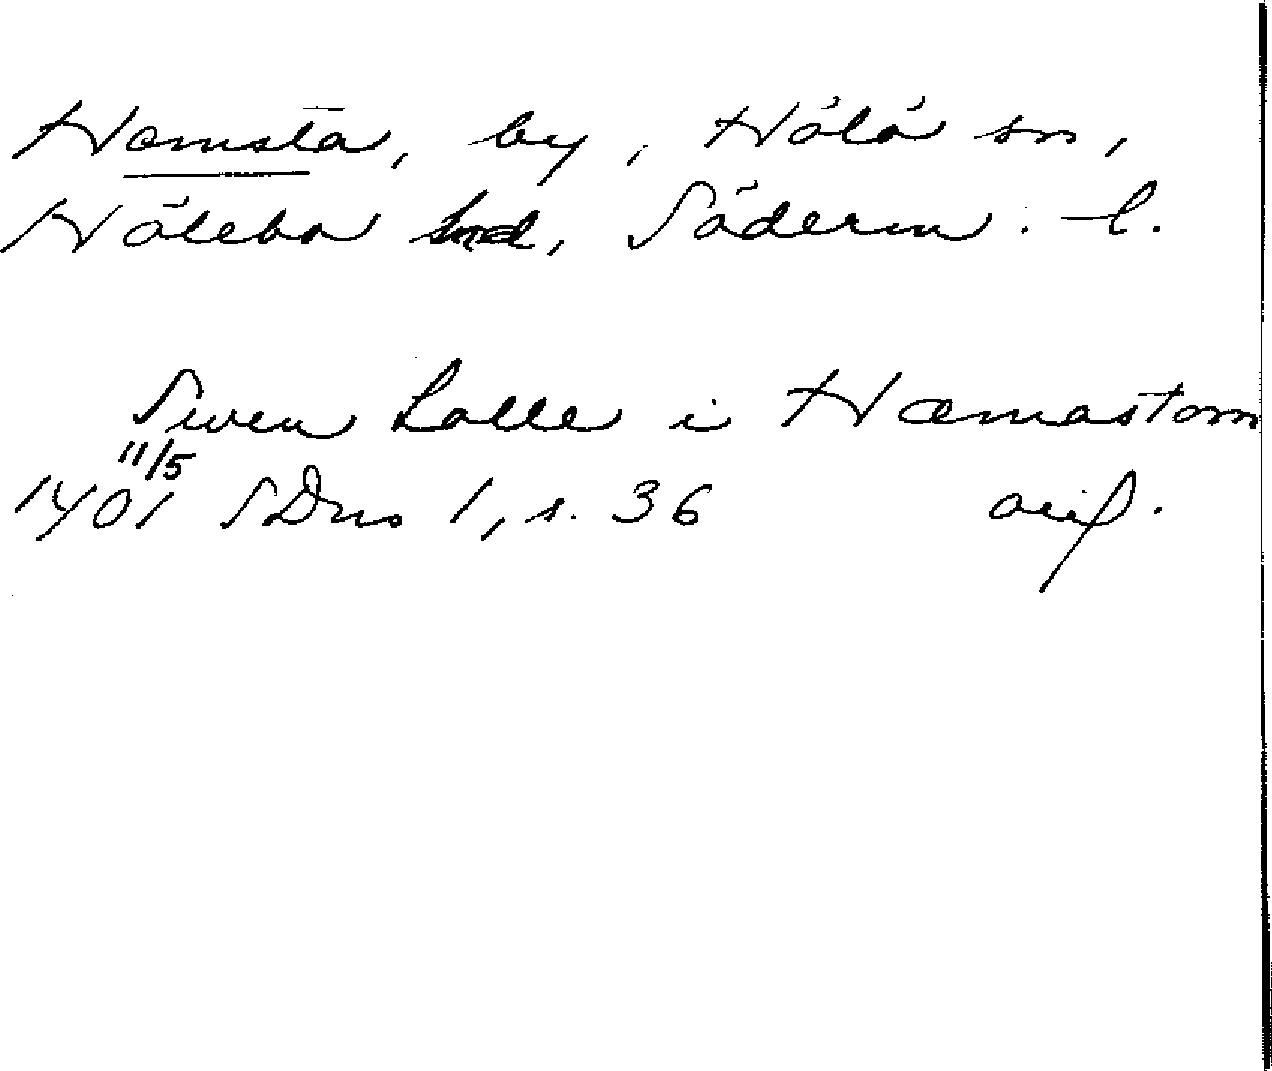 Hamsta, by, Hölö sn,
Hölebo hd, Söderm. l.
Swen Lalle i Hamastom
11/5
1401 SDns 1, s. 36 avsp.